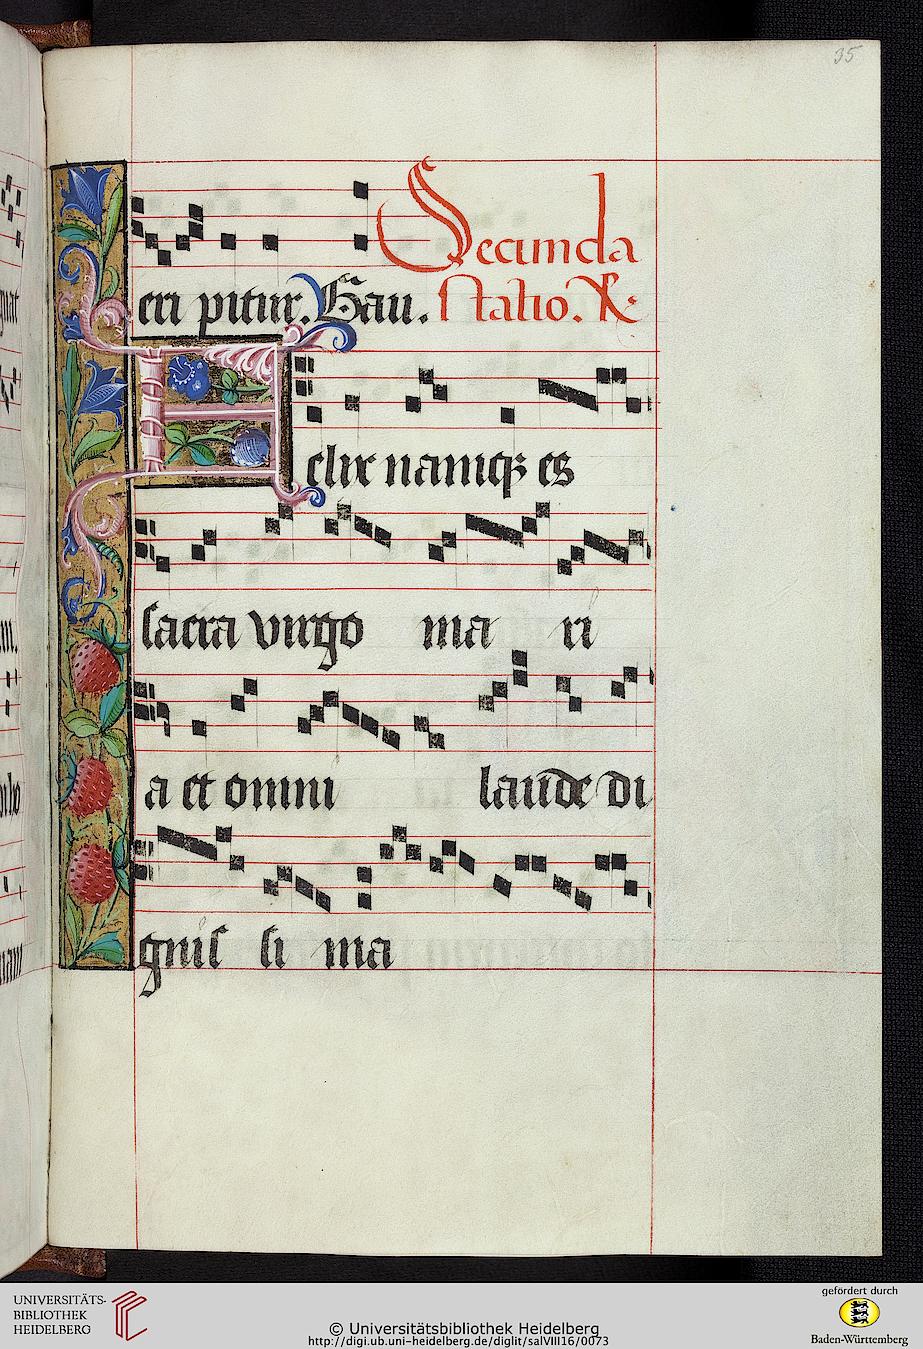 35
Secunda
eri pitur. Gau. statio. R.
Felix namqꝫ es
sacra virgo ma ri
a et omni laude di
gnis si ma
UNIVERSITÄTS-
BIBLIOTHEK
HEIDELBERG
© Universitätsbibliothek Heidelberg
http://digi.ub.uni-heidelberg.de/diglit/salVIII16/0073
gefördert durch
Baden-Württemberg